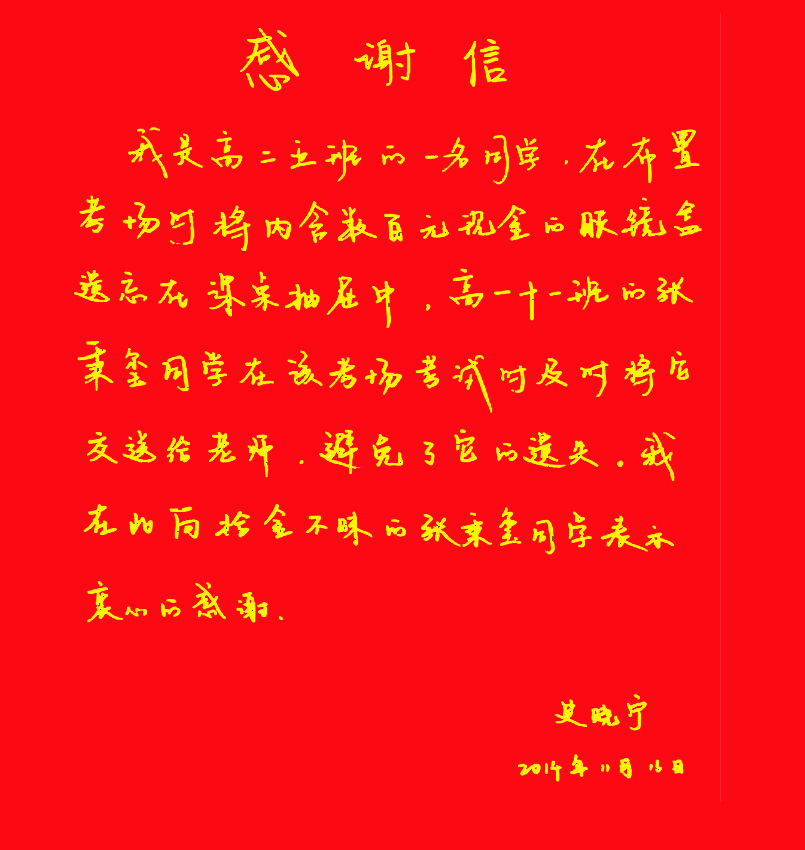 感谢信
我是高二五班的一名同学,在布置
考场时将内含数百元现金的眼镜盒
遗忘在课桌抽屉中,高一十一班的张
秉玺同学在该考场考试时及时将它
交送给老师,避免了它的遗失。我
在此向拾金不昧的张秉玺同学表示
衷心的感谢.
史晓宁
2014年11月13日